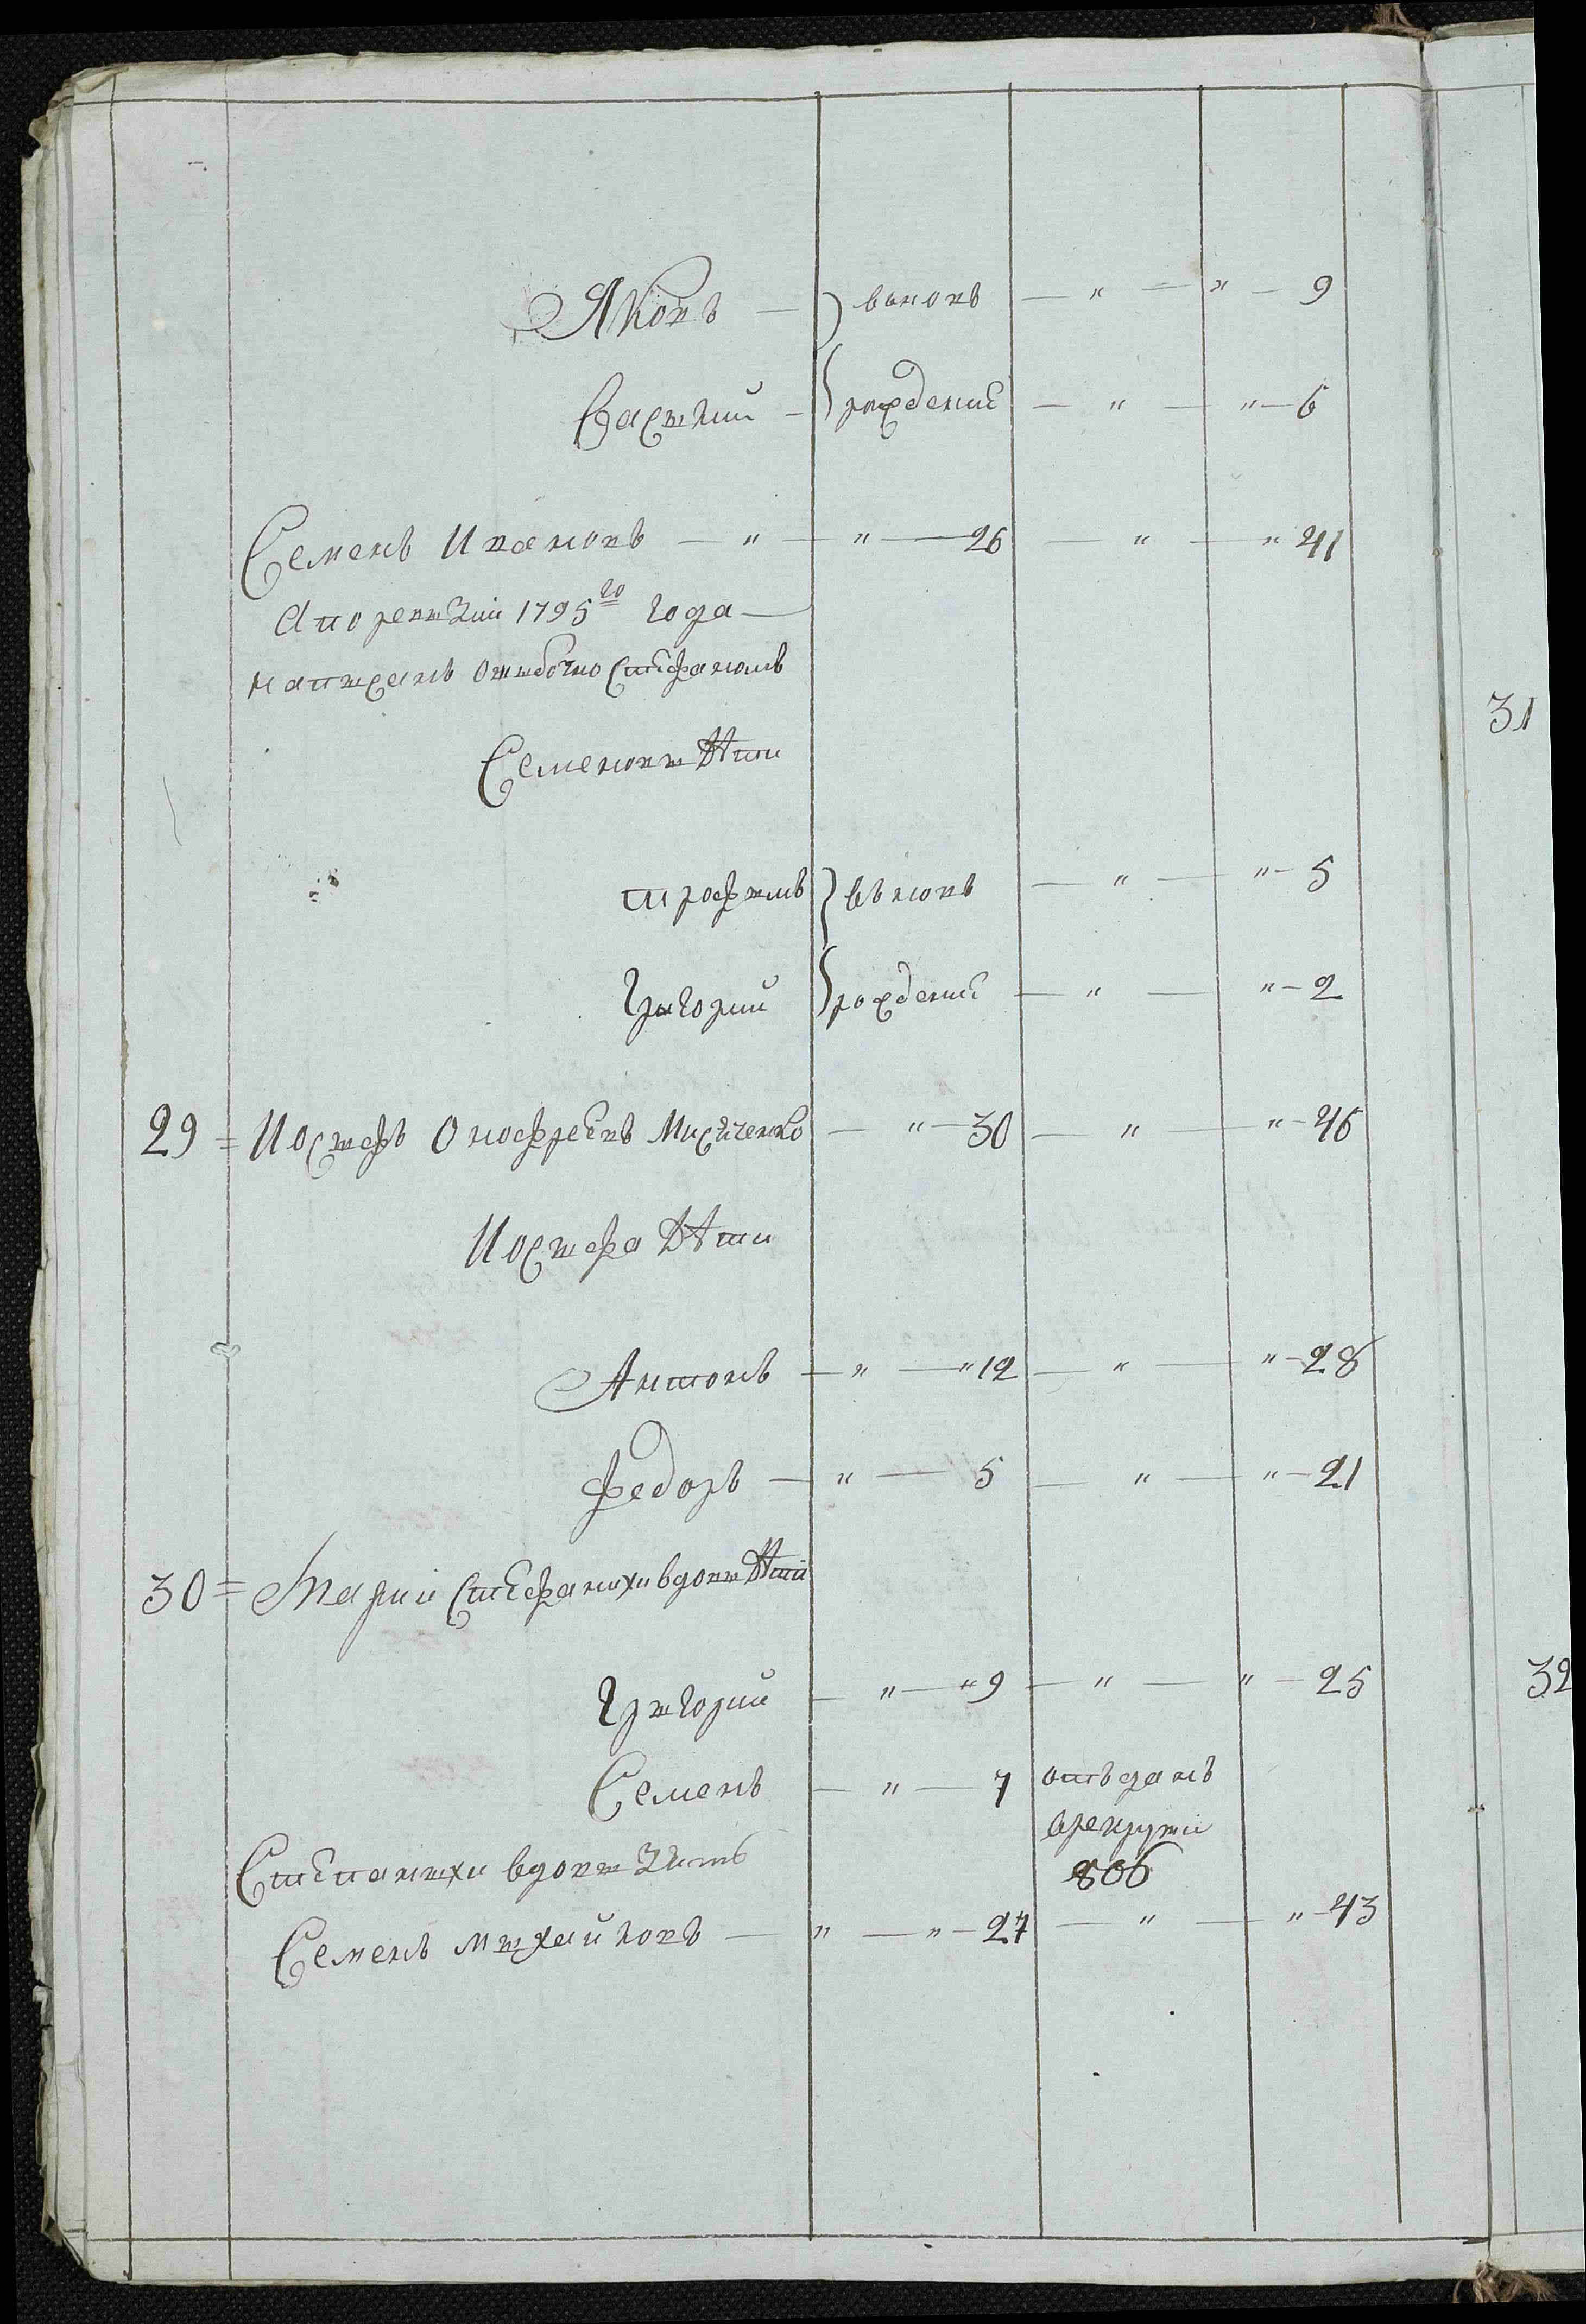 Яковъ — } вьновь — " — " — 9
Василий — } рождения — " — " — 6
Семенъ Ивановъ — " — " — 26 — " — " 41
А по ревизии 1795го года —
написанъ ошибочно Стефаномъ
Семеновы дѣти
Трофимъ } вьновь — " — " — 5
Григорий } рождения — " — " — 2
29 = Иосифъ Онофреевъ — " — 30 — " — " — 46
Иосифа дѣти
Антонъ — " — " 12 — " — " — 28
Федоръ — " — 5 — " — " — 21
30 = Марии Стефанихи вдовы дѣти
Григорий — " — " 9 — " — " — 25
Семенъ — " — 7 отъданъ
врекруты
806
Степанихи вдовы зять
Семенъ Михайловъ — " — " — 27 — " — " — 43
31
32